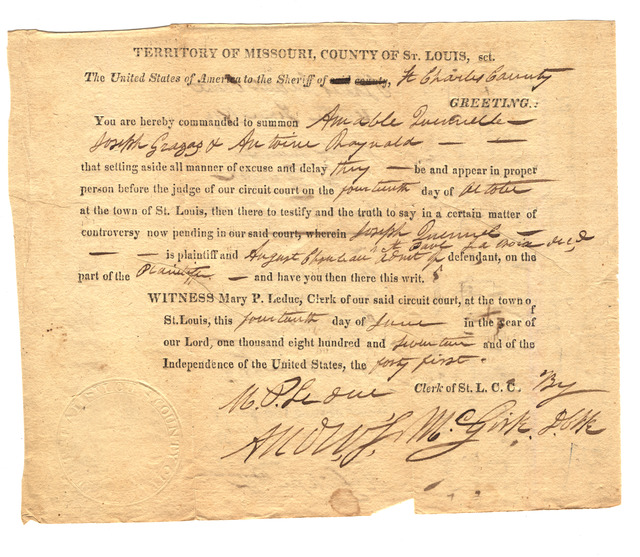 TERRITORY OF MISSOURI, COUNTY OF ST. LOUIS, sct.
The United States of America to the Sheriff of said county, St Charles County
GREETING:
You are hereby commanded to summon Amable Quenelle —
Joseph & Antoine Reynald — —
that setting aside all manner of excuse and delay they — be and appear in proper
person before the judge of our circuit court on the fourteenth day of October
at the town of St. Louis, then there to testify and the truth to say in a certain matter of
controversy now pending in our said court, wherein Joseph Quenel —
— — is plaintiff and August Chouteau admr of decd defendant, on the
part of the Plaintiff — and have you then there this writ.
WITNESS Mary P. Leduc, Clerk of our said circuit court, at the town of
St. Louis, this fourteenth day of June in the year of
our Lord, one thousand eight hundred and seventeen and of the
Independence of the United States, the forty first.
M. P. Leduc Clerk of St. L. C. C. By
McGirk